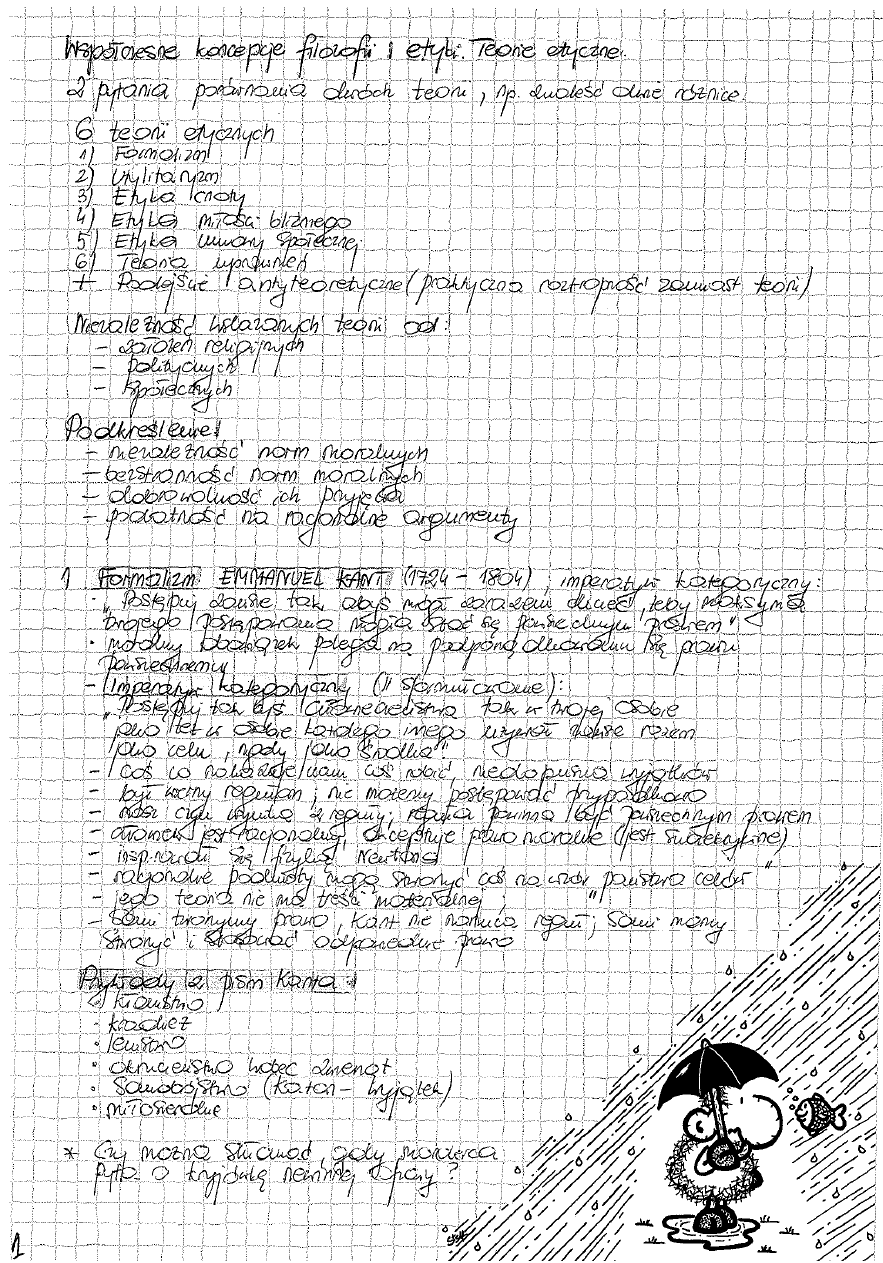 Współczesne koncepcje filozofii i etyki. Teorie etyczne.
2 pytania porównania dwóch teorii, np. znaleść dwie różnice.
6 teorii etycznych
1) Formalizm
2) Utylitaryzm
3) Etyka cnoty
4) Etyka miłości bliźniego
5) Etyka umowy społecznej
6) Teoria uprawnień
+ Podejście antyteoretyczne (praktyczna roztropność zamiast teorii)
Niezależność wskazanych teorii od:
- założeń religijnych
- politycznych
- społecznych
Podkreślenie
- niezależność norm moralnych
- bezstronność norm moralnych
- dobrowolność ich przyjęcia
- podatność na racjonalne argumenty
1 Formalizm EMMANUEL KANT (1724 - 1804), imperatyw kategoryczny:
• "Postępuj zawsze tak abyś mógł zarazem chcieć, żeby maksyma
twojego postępowania mogła stać się powszechnym prawem"
• moralny obowiązek polega na podporządkowaniu się prawu
powszechnemu
- Imperatyw kategoryczny (II sformułowanie):
"Postępuj tak byś człowieczeństwa tak w twojej osobie
jako też w osobie każdego innego używał zawsze razem
jako celu, nigdy jako środka".
- coś co nakazuje nam coś robić, niedopuszcza wyjątków
- być wierny regułom, nie możemy postępować przypadkowo
- czyn wynika z reguły; reguła powinna być powszechnym prawem
- człowiek jest racjonalny, akceptuje prawo moralne (jest subiektywne)
- inspirował się fizyką Newtona
- racjonalne podmioty mogą stworzyć coś na wzór "państwa celów"
- jego teoria nie ma treści materialnej;
- Sami tworzymy prawo, Kant nie narzuca reguł; sami mamy
stworzyć i stosować odpowiednie prawo
Przykłady z pism Kanta
• kłamstwo
• kradzież
• lenistwo
• okrucieństwo wobec zwierząt
• Samobójstwo (Katon - wyjątek)
• miłosierdzie
* Czy można skłamać, gdy morderca
pyta o kryjówkę niewinnej ofiary?
1